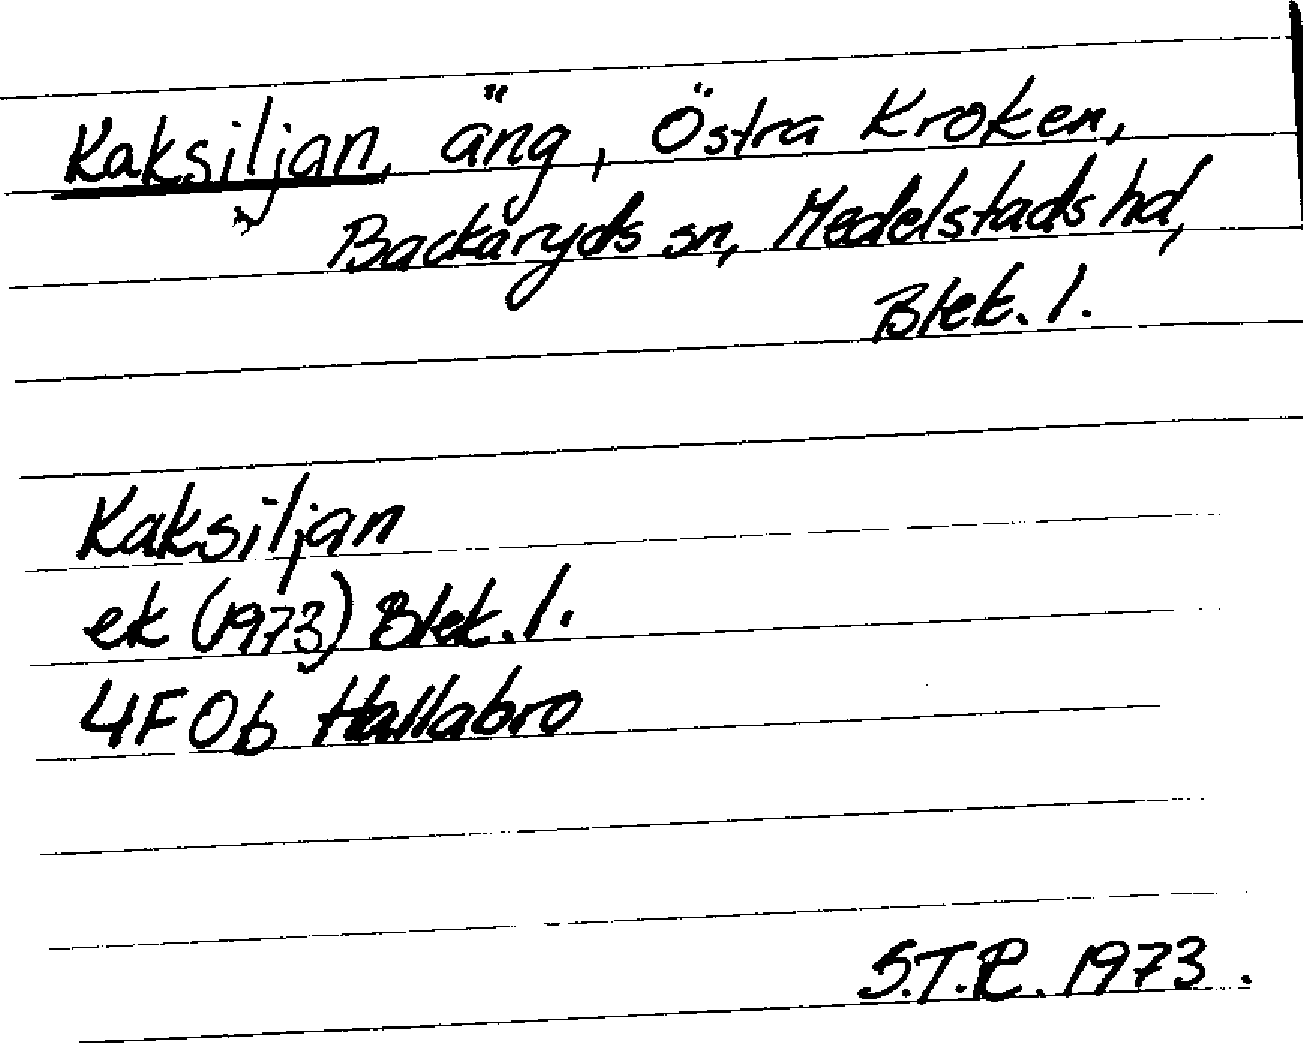 Kaksiljan, äng, Östra Kroken,
Backaryds sn, Medelstads hd,
Blek. l.
Kaksiljan
ek (1973) Blek. l.
4F0b Hallabro
S.T.R. 1973.